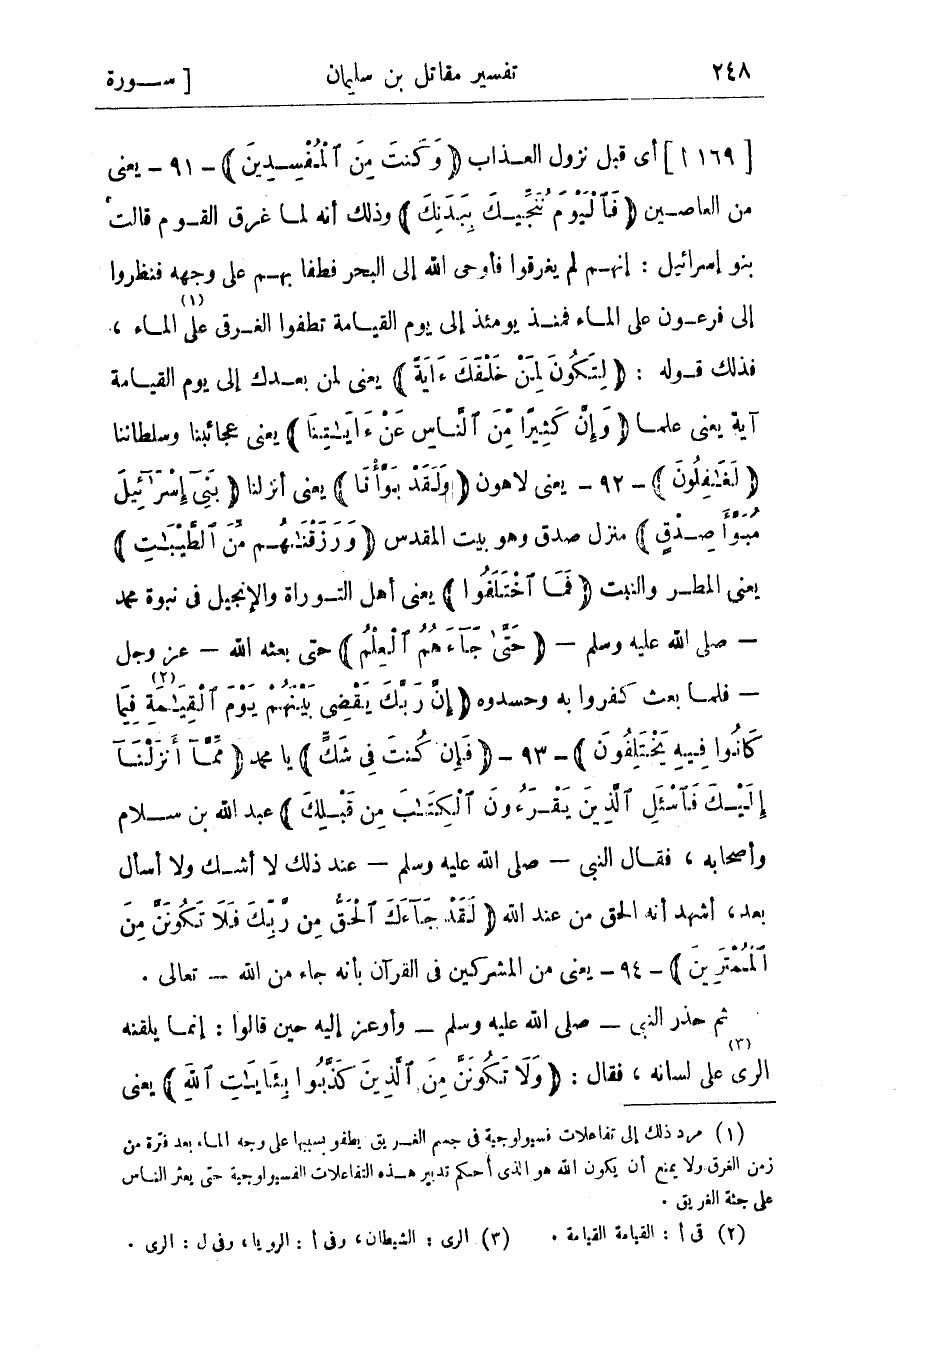 ٢٤٨ تفسير مقاتل بن سليمان [ ســورة
[ ١٦٩ ا ] أى قبل نزول العـذاب ﴿ وَكُنتَ مِنَ ٱلْمُفْسِدِينَ ﴾ ـ ٩١ ـ يعنى
من العاصـين ﴿ فَٱلْيَوْمَ نُنَجِّيـكَ بِبَدَنِكَ ﴾ وذلك أنه لمـا غـرق القـوم قالت
بنو إسرائيل : إنهـم لم يغرقوا فأوحى الله إلى البحر فطفا بهـم على وجهه فنظروا
إلى فرعـون على المـاء فمنـذ يومئذ إلى يوم القيـامة تطفوا الغـرقى على المـاء (١) ،
فذلك قـوله : ﴿ لِتَكُونَ لِمَنْ خَلْفَكَ ءَايَةً ﴾ يعنى لمن بعـدك إلى يوم القيـامة
آية يعنى علمـا ﴿ وَإِنَّ كَثِيرًا مِّنَ ٱلنَّاسِ عَنْ ءَايَٰتِنَا ﴾ يعنى عجائبنا وسلطاننا
﴿ لَغَٰفِلُونَ ﴾ ـ ٩٢ ـ يعنى لاهون ﴿ وَلَقَدْ بَوَّأْنَا ﴾ يعنى أنزلنا ﴿ بَنِىٓ إِسْرَٰٓئِيلَ
مُبَوَّأَ صِـدْقٍ ﴾ منزل صدق وهو بيت المقدس ﴿ وَرَزَقْنَٰهُـم مِّنَ ٱلطَّيِّبَٰتِ ﴾
يعنى المطـر والنبت ﴿ فَمَـا ٱخْتَلَفُوا ﴾ يعنى أهل التـوراة والإنجيل فى نبوة محمد
— صلى الله عليه وسلم — ﴿ حَتَّىٰ جَآءَهُمُ ٱلْعِلْمُ ﴾ حتى بعثه الله — عز وجل
— فلمـا بعث كفروا به وحسدوه ﴿ إِنَّ رَبَّكَ يَقْضِى بَيْنَهُمْ يَوْمَ ٱلْقِيَٰمَةِ (٢) فِيمَا
كَانُوا فِيـهِ يَخْتَلِفُونَ ﴾ ـ ٩٣ ـ ﴿ فَإِن كُنتَ فِى شَكٍّ ﴾ يا محمد ﴿ مِّمَّآ أَنزَلْنَـآ
إِلَيْـكَ فَٱسْئَلِ ٱلَّذِينَ يَقْـرَءُونَ ٱلْكِتَٰبَ مِن قَبْـلِكَ ﴾ عبد الله بن ســلام
وأصحابه ، فقـال النبى — صلى الله عليه وسلم — عند ذلك لا أشـك ولا أسأل
بعد، أشهد أنه الحق من عند الله ﴿ لَقَدْ جَآءَكَ ٱلْحَقُّ مِن رَّبِّكَ فَلَا تَكُونَنَّ مِنَ
ٱلْمُمْتَرِينَ ﴾ ـ ٩٤ ـ يعنى من المشركين فى القرآن بأنه جاء من الله — تعالى .
ثم حذر النبى — صلى الله عليه وسلم — وأوعز إليه حين قالوا : إنمـا يلقنه
الرى (٣) على لسانه ، فقال : ﴿ وَلَا تَكُونَنَّ مِنَ ٱلَّذِينَ كَذَّبُوا بِـَٔايَٰتِ ٱللَّهِ ﴾ يعنى
(١) مرد ذلك إلى تفاعلات فسيولوجية فى جسم الغـريق يطفو بسببها على وجه المـاء بعد فترة من
زمن الغرق ولا يمنع أن يكون الله هو الذى أحكم تدبير هـذه التفاعلات الفسيولوجية حتى يعثر النـاس
على جثة الغريق .
(٢) فى أ : القيامة القيامة . (٣) الرى : الشيطان، وفى أ : الرويا، وفى ل : الرى .